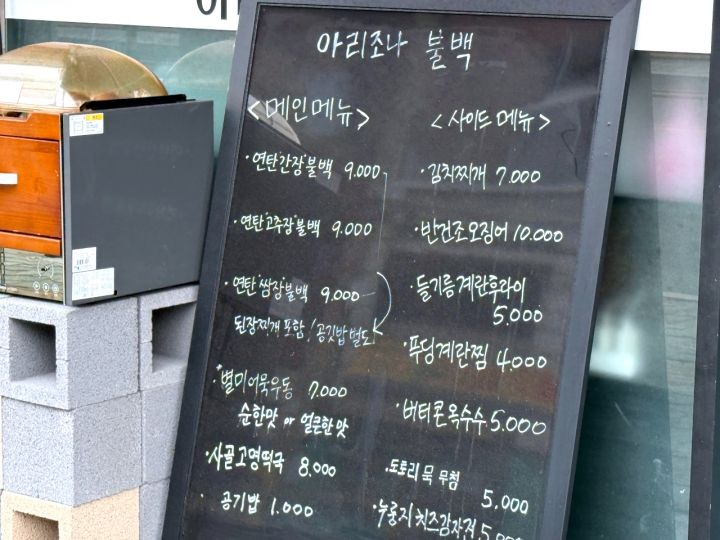 아리조나 불백
<메인메뉴>
· 연탄'간장'불백 9.000
· 연탄'고추장'불백 9.000
· 연탄'쌈장'불백 9.000
된장찌개 포함 / 공깃밥 별도
· 별미 어묵우동 7.000
순한맛 or 얼큰한맛
· 사골고명떡국 8.000
· 공기밥 1.000
<사이드 메뉴>
· 김치찌개 7.000
· 반건조오징어 10.000
· 들기름계란후라이
5.000
· 푸딩계란찜 4.000
· 버터콘옥수수 5.000
· 도토리묵 무침
5.000
· 누룽지 치즈감자전 5.000